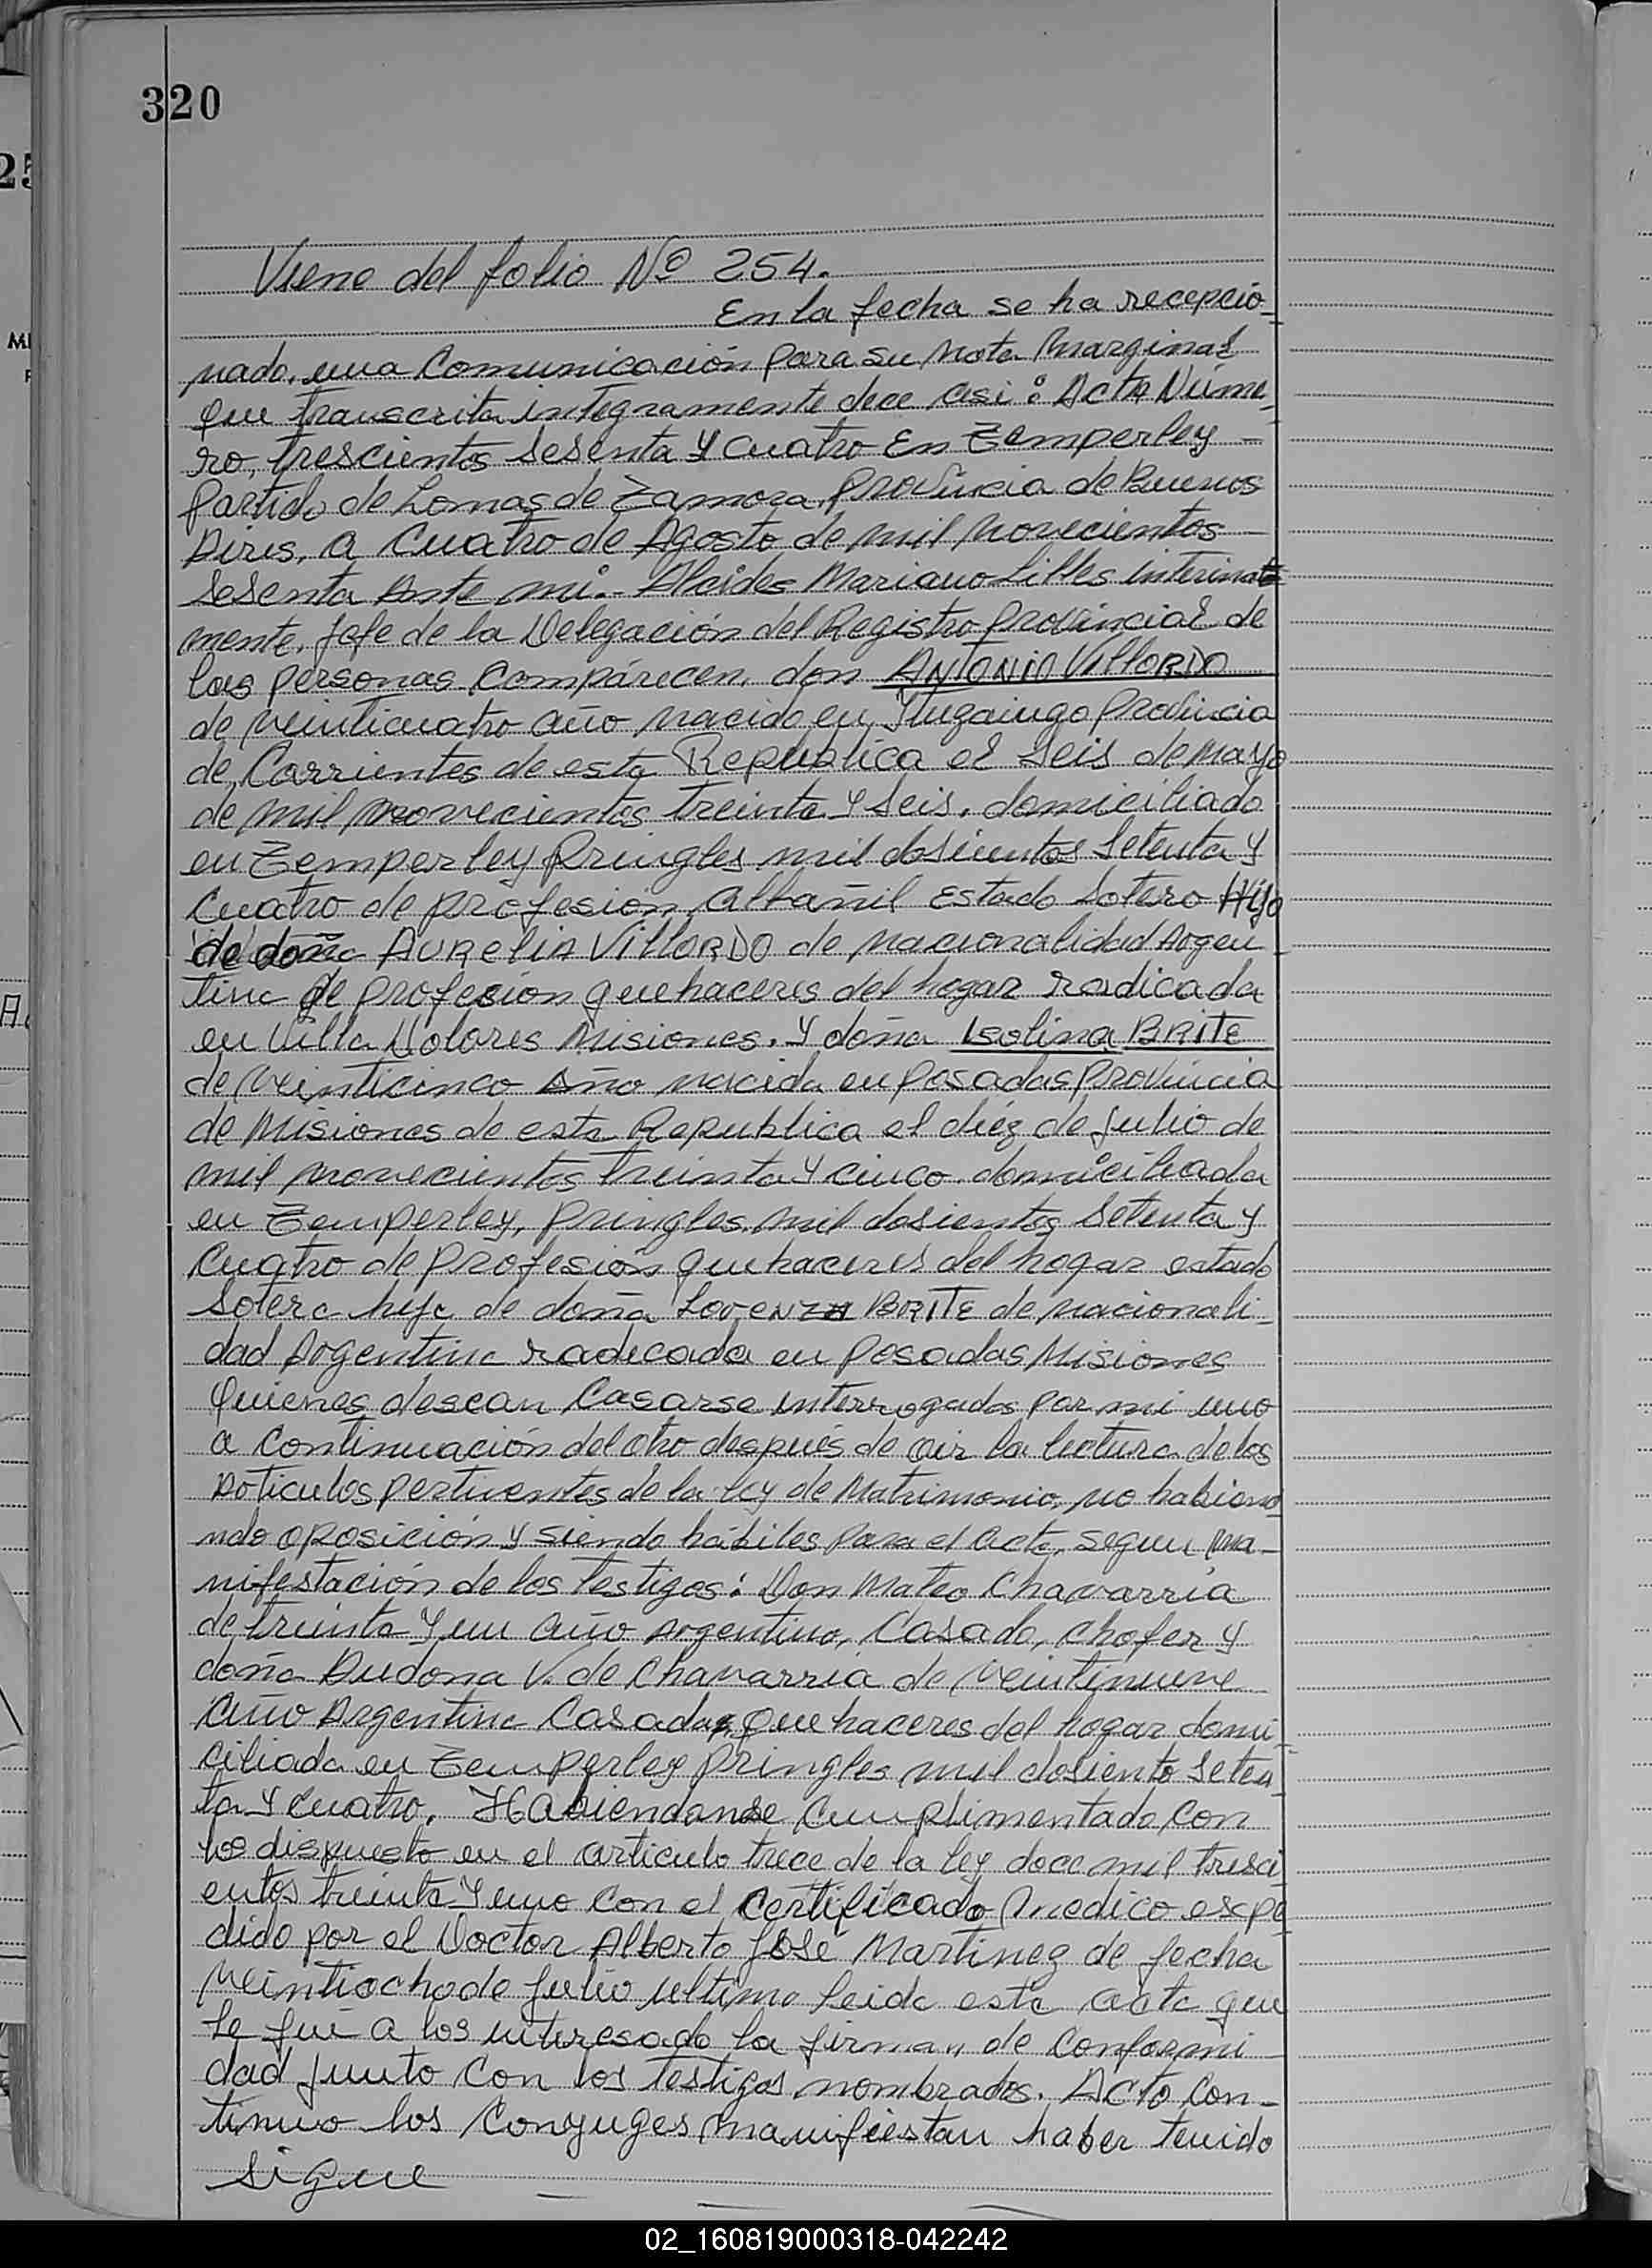 320
Viene del folio Nº 254.
En la fecha se ha recepcio-
nado una Comunicación para su nota marginal
que transcrita integramente dece asi: Acta Núme-
ro, trescientos Sesenta y cuatro En Temperley -
Partido de Lomas de Zamora, Provincia de Buenos
Aires, a Cuatro de Agosto de mil novecientos
Sesenta Ante mi.- Alcides Mariano interinate
mente, Jefe de la Delegación del Registro Provincial de
las personas. Comparecen, don ANTONIO VILLORDO
de veinticuatro año nacido en Ituzaingo Provincia
de Corrientes de esta Republica el Seis de Mayo
de mil novecientos treinta y Seis, domiciliado
en Temperley Pringles mil dosientos Setenta y
Cuatro de profesión Albañil Estado Sotero Hijo
de doña AURELIA VILLORDO de nacionalidad Argen-
tina de profesion quehaceres del hogar radicada
en Villa Dolores Misiones. Y doña Isolina BRITE
de Veinticinco Año nacida en Posadas Provincia
de Misiones de esta Republica el diéz de Julio de
mil novecientos treinta y cinco domiciliada
en Temperley, Pringles, mil dosientos Setenta y
Cuatro de Profesión quehaceres del hogar estado
Sotera hija de doña LORENZA BRITE de nacionali-
dad Argentina radecada en Posadas Misiones
Quienes desean Casarse interrogados por mi uno
a Continuación del otro después de oir la lectura de los
Articulos pertinentes de la ley de Matrimonio, no habien
ndo oposición y siendo hábiles para el acto, segun ma-
nifestación de los testigos: Don Mateo Chavarria
de treinta y un año Argentino, Casado, chofer y
doña V. de Chavarria de Veintinueve
Año Argentina Casada, Que haceres del hogar domi-
ciliada en Temperley Pringles mil dosiento Seten
ta y Cuatro. Habiendose Cumplimentado con
los dispuesto en el articulo trece de la ley doce mil tresci
entos treinta y uno con el Certificado medico expe
dido por el Doctor Alberto José Martinez de fecha
Veintiocho de Julio ultimo leida esta acta que
le fue a los interesado la firman de Conformi-
dad Junto Con los Testigos nombrados. Acto Con-
tinuo los Conyuges manifiestan haber tenido
Sigue
02_160819000318-042242